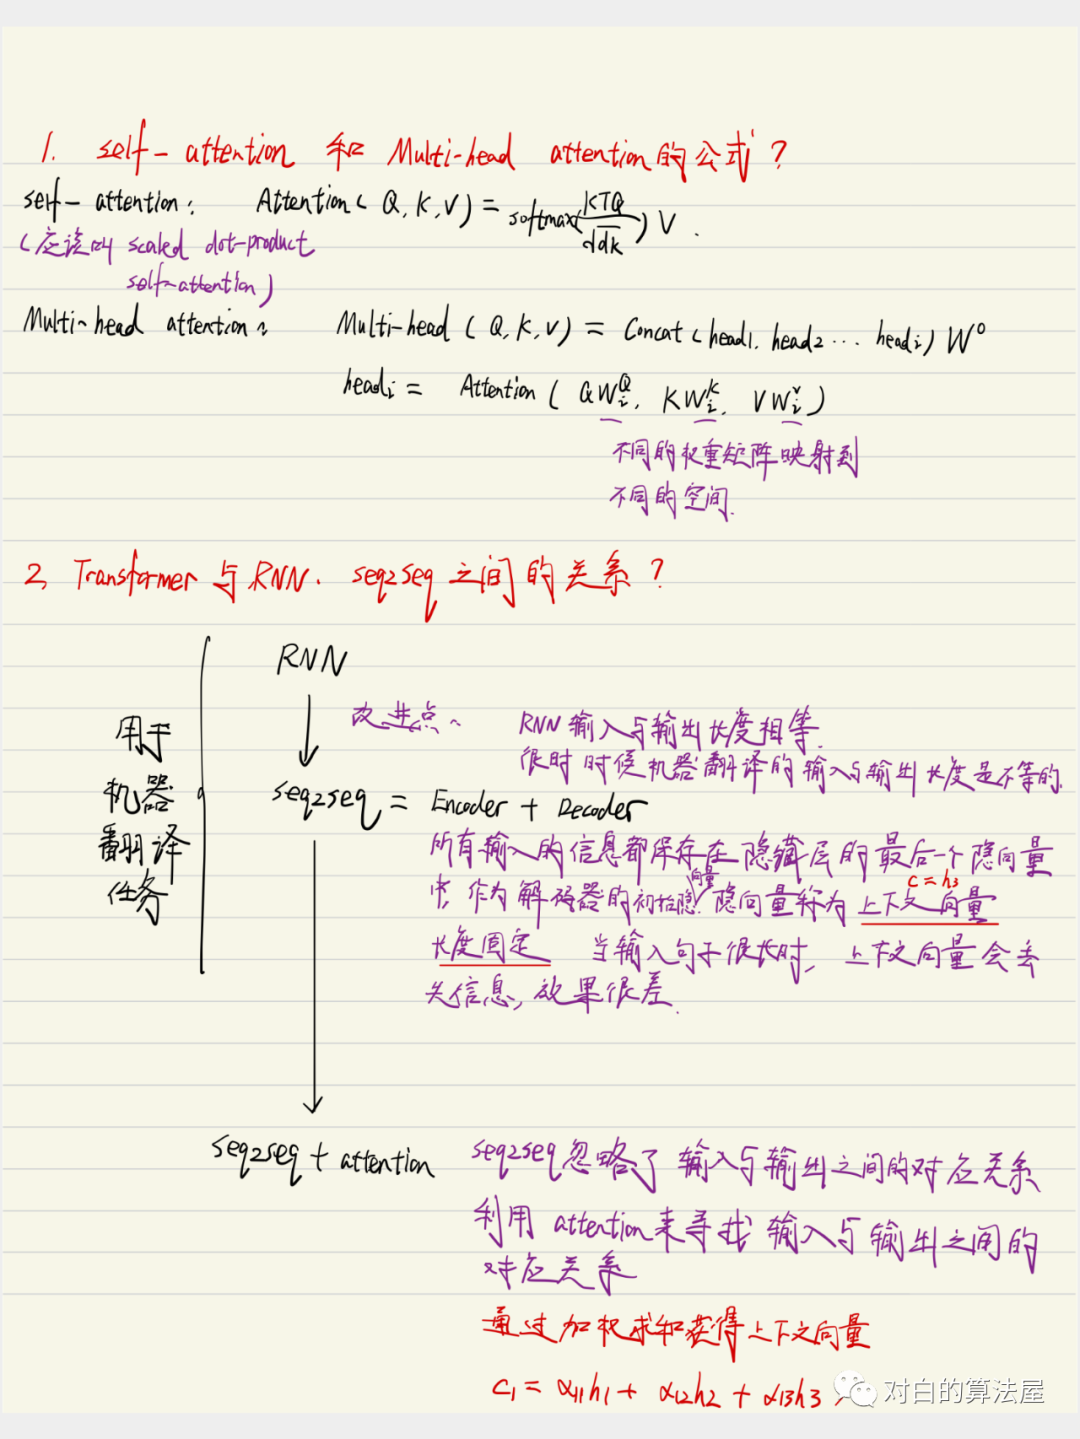 1. self-attention 和 Multi-head attention的公式？
self-attention: Attention(Q,K,V) = softmax(KTQ/√dk)V.
(应该叫 scaled dot-product
self-attention)
Multi-head attention: Multi-head(Q,K,V) = Concat(head1, head2 ... headi)W^O
headi = Attention(QWi^Q, KWi^K, VWi^V)
不同的权重矩阵映射到
不同的空间.
2. Transformer 与 RNN、seq2seq 之间的关系？
用于
机器
翻译
任务
RNN
改进点:
RNN 输入与输出长度相等
很时时候机器翻译的输入与输出长度是不等的.
seq2seq = Encoder + Decoder
所有输入的信息都保存在隐藏层的最后一个隐向量
中,作为解码器的初始隐向量.隐向量称为上下文向量
c=h3
长度固定 当输入句子很长时, 上下文向量会丢
失信息,效果很差.
seq2seq + attention
seq2seq忽略了输入与输出之间的对应关系
利用 attention来寻找输入与输出之间的
对应关系
通过加权求和获得上下文向量
c1 = α11h1 + α12h2 + α13h3
对白的算法屋